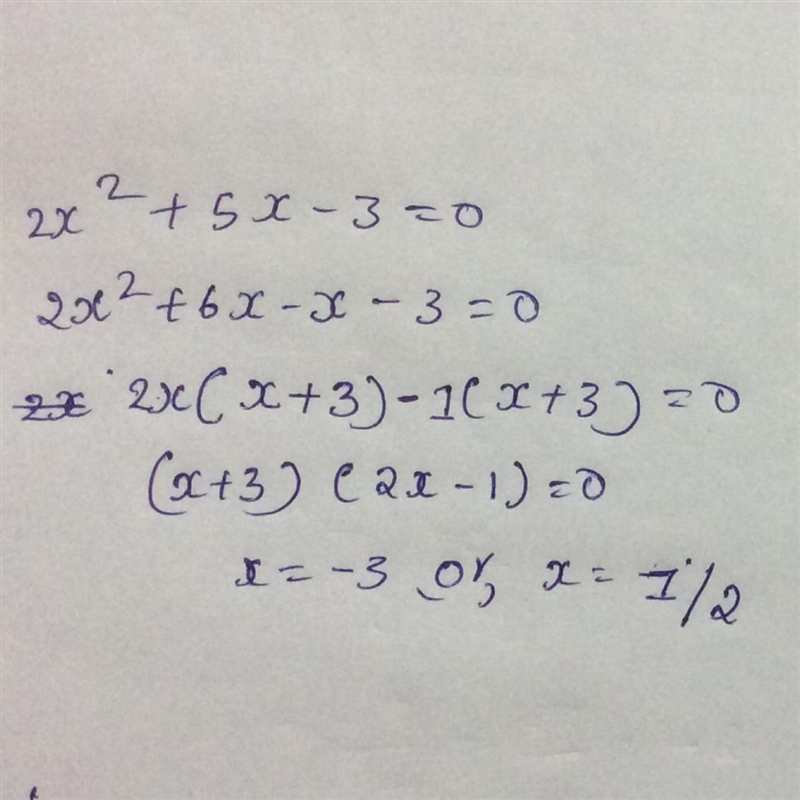 2x² + 5x - 3 = 0
2x² + 6x - x - 3 = 0
2x(x+3) - 1(x+3) = 0
(x+3) (2x - 1) = 0
x = -3 or, x = 1/2